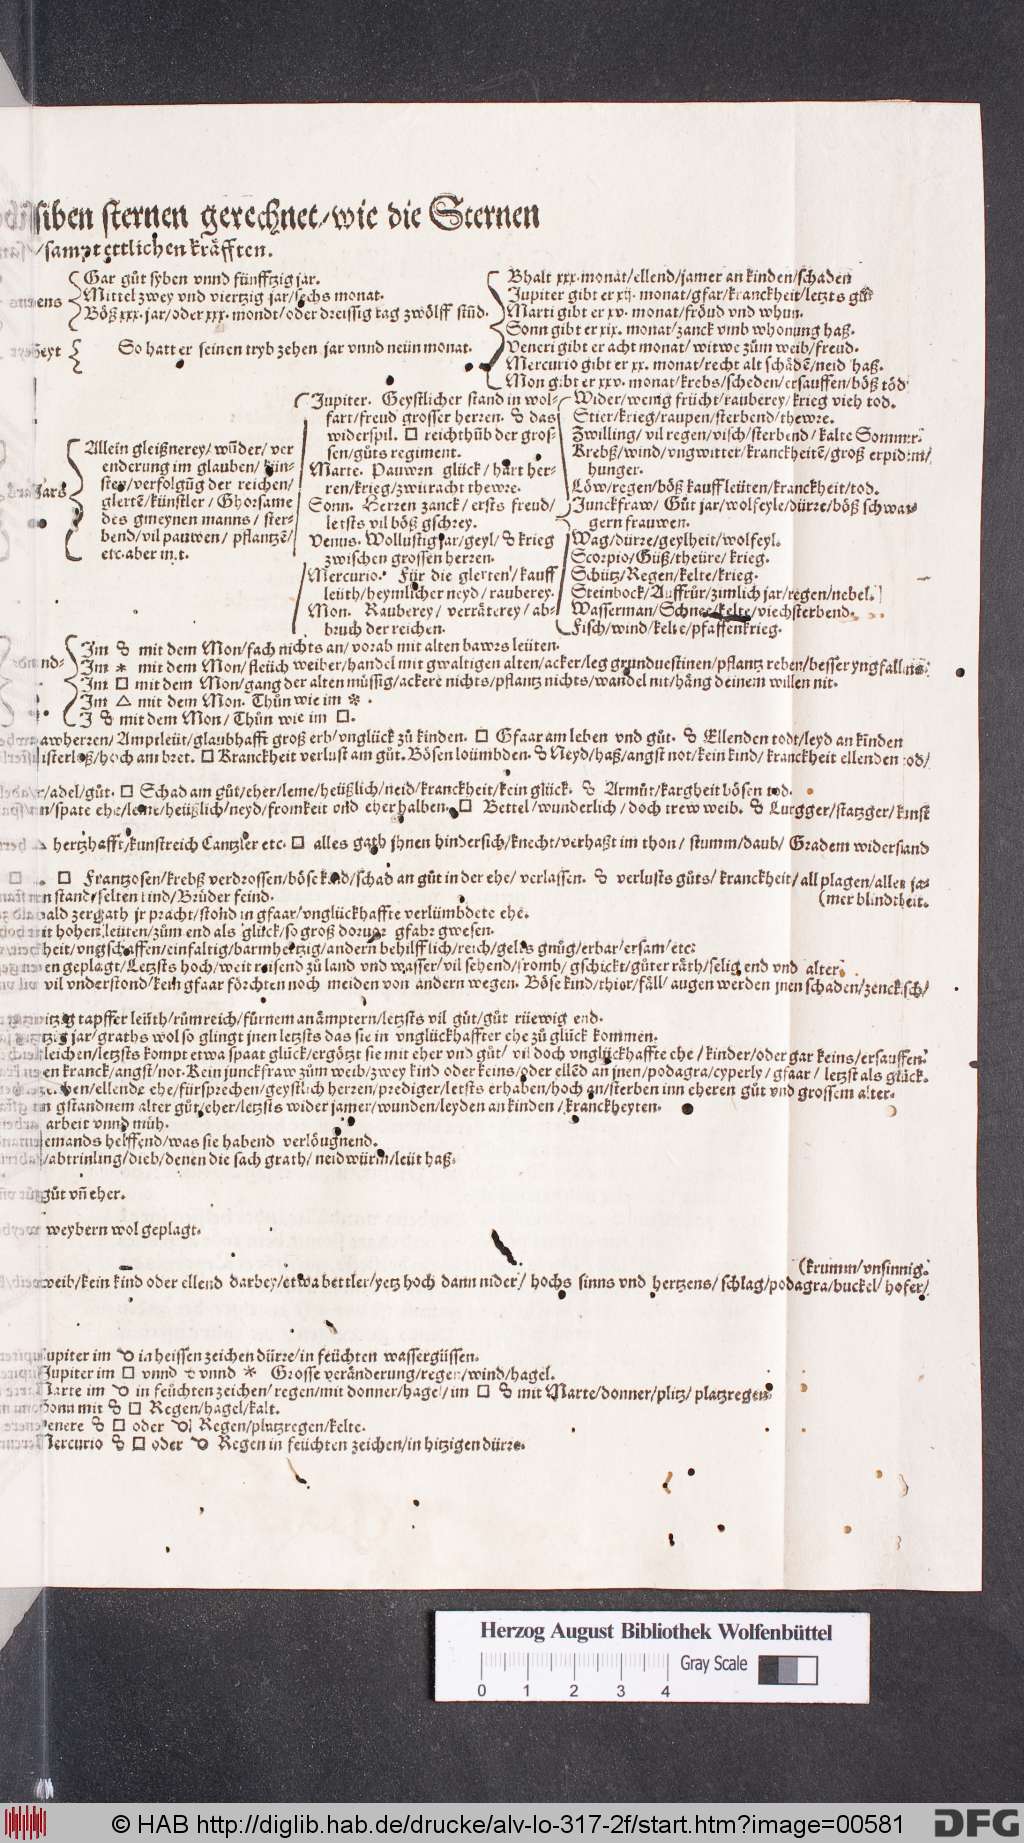 siben sternen gerechnet/wie die Sternen
/sampt ettlichen kräfften.
Gar gůt syben vnnd fünfftzig jar.
Mittel zwey vnd viertzig jar/sechs monat.
Böß xxx. jar/oder xxx. mondt/oder dreissig tag zwölff stūd.
So hatt er seinen tryb zehen jar vnnd neün monat.
Bhalt xxx. monat/ellend/jamer an kinden/schaden
Jupiter gibt er xij. monat/gfar/kranckheit/letzts gůt
Marti gibt er xv. monat/fröud vnd whun.
Sonn gibt er xix. monat/zanck vmb whonung haß.
Veneri gibt er acht monat/witwe zům weib/freud.
Mercurio gibt er xx. monat/recht alt schädē/neid haß.
Mon gibt er xxv. monat/krebs/scheden/ersauffen/böß töd
Jars
Allein gleißnerey/wūder/ver
enderung im glauben/kün-
stey/verfolgūg der reichen/
glertē/künstler/Ghorsame
des gmeynen manns/ster-
bend/vil pauwen/pflantzē/
etc. aber in.t.
Jupiter. Geystlicher stand in wol-
fart/freud grosser herren. ☍ das
widerspil. □ reichthūb der gros-
sen/gůts regiment.
Marte. Pauwrn glück/hart her-
ren/krieg/zwitracht thewre.
Sonn. Herren zanck/ersts freud/
letsts vil böß gschrey.
Venus. Wollustig jar/geyl/☍ krieg
zwischen grossen herren.
Mercurio. Für die glerten/kauff
leüth/heymlicher neyd/rauberey.
Mon. Rauberey/verräterey/ab-
bruch der reichen.
Wider/wenig frücht/rauberey/krieg vieh tod.
Stier/krieg/raupen/sterbend/thewre.
Zwilling/vil regen/visch/sterbend/kalte Sommer.
Krebß/wind/vngwitter/kranckheitē/groß erpidem/
hunger.
Löw/regen/böß kauffleüten/kranckheit/tod.
Junckfraw/Gůt jar/wolfeyle/dürre/böß schwan-
gern frauwen.
Wag/dürre/geylheit/wolfeyl.
Scorpio/Güß/theüre/krieg.
Schütz/Regen/kelte/krieg.
Steinbock/Aufftür/zimlich jar/regen/nebel.
Wasserman/Schnee/kelte/viechsterbend.
Fisch/wind/kelte/pfaffenkrieg.
Im ☍ mit dem Mon/fach nichts an/vorab mit alten bawrs leüten.
Im ✶ mit dem Mon/fleüch weiber/handel mit gwaltigen alten/acker/leg grundvestinen/pflantz reben/besser yngfallens.
Im □ mit dem Mon/gang der alten müssig/ackere nichts/pflantz nichts/wandel nit/häng deinem willen nit.
Im △ mit dem Mon. Thůn wie im ✶.
J ☍ mit dem Mon/Thůn wie im □.
awherren/Amptleüt/glaubhafft groß erb/vnglück zů kinden. □ Gfaar am leben vnd gůt. ☍ Ellenden todt/leyd an kinden
isterloß/hoch am bret. □ Kranckheit verlust am gůt. Bösen loümbden. ☍ Neyd/haß/angst not/kein kind/kranckheit ellenden tod/
/adel/gůt. □ Schad am gůt/eher/leme/heüßlich/neid/kranckheit/kein glück. ☍ Armůt/kargheit bösen tod.
n/spate ehe/leme/heüßlich/neyd/fromkeit vnd eherhalben. □ Bettel/wunderlich/doch trew weib. ☍ Lurgger/statzger/kunst
hertzhafft/kunstreich Cantzler etc. □ alles gath jhnen hindersich/knecht/verhaßt im thon/stumm/daub/Gradem widerstand
□ Frantzosen/krebß verdrossen/böse kind/schad an gůt in der ehe/verlassen. ☍ verlusts gůts/kranckheit/all plagen/allen ja-
n stand/selten kind/Brüder feind. (mer blindtheit.
ald zergath jr pracht/stond in gfaar/vnglückhaffte verlümbdete ehe.
it hohen leüten/zům end als glück/so groß dorvor gfahr gwesen.
heit/vngschaffen/einfaltig/barmhertzig/andern behilfflich/reich/gelts gnůg/erbar/ersam/etc.
en geplagt/Letzsts hoch/weit reisend zů land vnd wasser/vil sehend/fromb/gschickt/gůter räth/selig end vnd alter.
vil vnderstond/kein gfaar förchten noch meiden von andern wegen. Böse kind/thier/fäll/augen werden jnen schaden/zenckisch/
itzig tapffer leüth/růmreich/fürnem an ämptern/letzsts vil gůt/gůt rüewig end.
tzig jar/graths wol so glingt jnen letzsts das sie in vnglückhaffter ehe zů glück kommen.
leichen/letzsts kompt etwa spaat glück/ergötzt sie mit eher vnd gůt/vil doch vnglückhaffte ehe/kinder/oder gar keins/ersauffen.
en kranck/angst/not. Kein junckfraw zům weib/zwey kind oder keins/oder ellēd an jnen/podagra/cyperly/gfaar/letzst als glück.
chen/ellende ehe/fürsprechen/geystlich herren/prediger/letsts erhaben/hoch an/sterben inn eheren gůt vnd grossem alter.
n gstandnem alter gůt/eher/letzsts wider jamer/wunden/leyden an kinden/kranckheyten.
arbeit vnnd müh.
iemands helffend/was sie habend verlöugnend.
/abtrinling/dieb/denen die sach grath/neidwürm/leüt haß.
gůt vñ eher.
weybern wol geplagt.
(krumm/vnsinnig.
weib/kein kind oder ellend darbey/etwa bettler/yetz hoch dann nider/hochs sinns vnd hertzens/schlag/podagra/buckel/hofer/
Jupiter im ☌ in heissen zeichen dürre/in feüchten wassergüssen.
Jupiter im □ vnnd ☍ vnnd ✶ Grosse veränderung/regen/wind/hagel.
Marte im ☌ in feüchten zeichen/regen/mit donner/hagel/im □ ☍ mit Marte/donner/plitz/platzregen.
Sonn mit ☍ □ Regen/hagel/kalt.
Venere ☍ □ oder ☌ Regen/platzregen/kelte.
Mercurio ☍ □ oder ☌ Regen in feüchten zeichen/in hitzigen dürre.
Herzog August Bibliothek Wolfenbüttel
Gray Scale
0 1 2 3 4
© HAB http://diglib.hab.de/drucke/alv-lo-317-2f/start.htm?image=00581
DFG